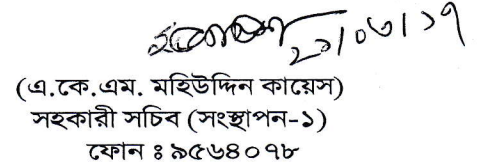 ২১/০৩/১৭
(এ.কে.এম. মহিউদ্দিন কায়েস)
সহকারী সচিব (সংস্থাপন-১)
ফোন ঃ ৯৫৬৪০৭৮